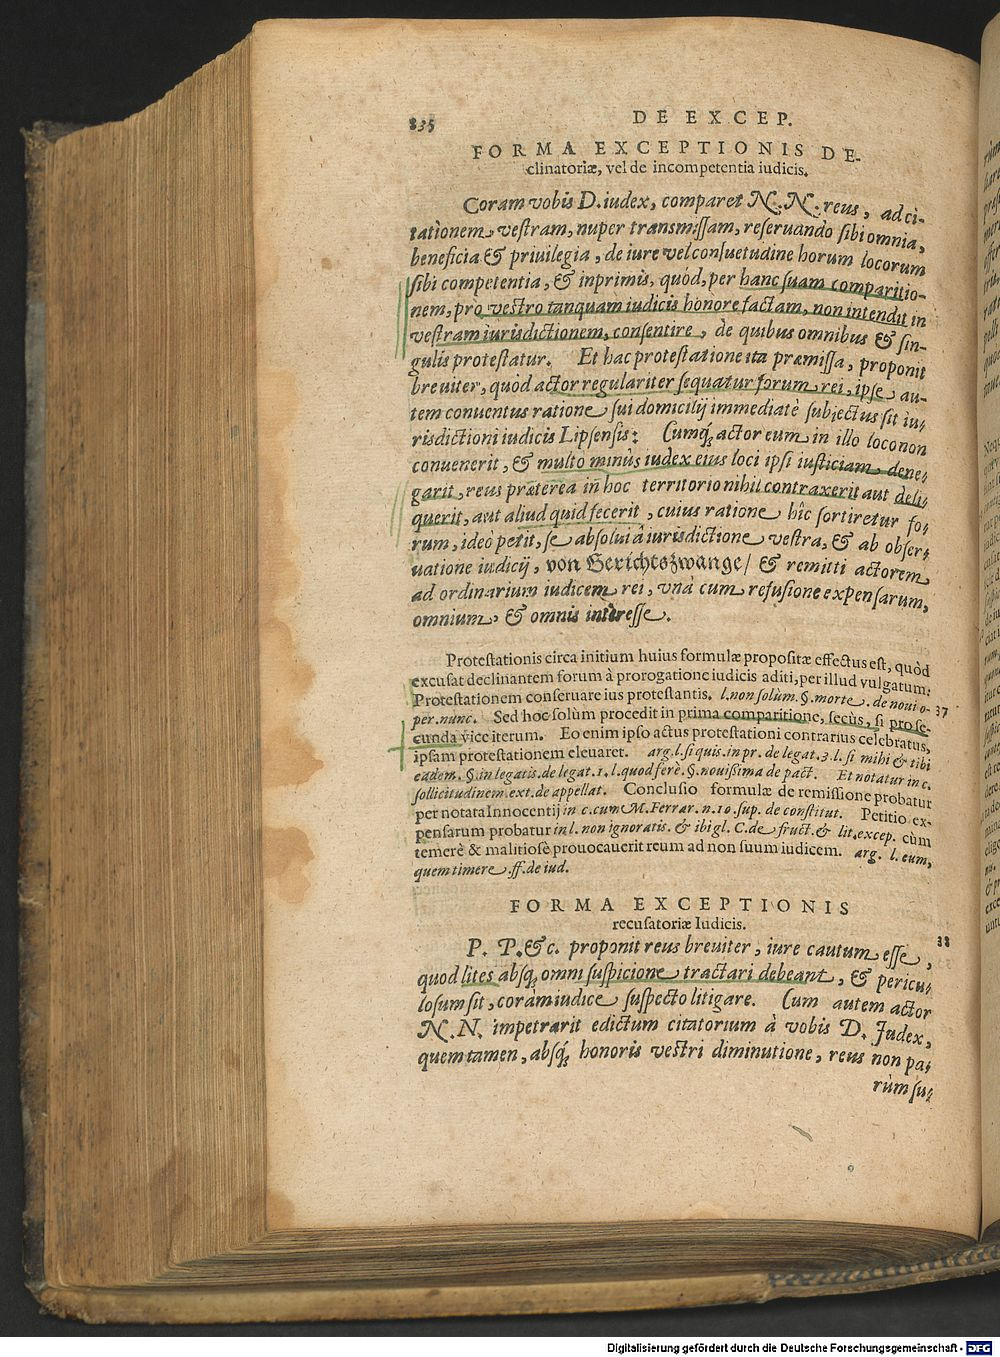 835 DE EXCEP.
FORMA EXCEPTIONIS DE-
clinatoriæ, vel de incompetentia iudicis.
Coram vobis D. iudex, comparet N. N. reus, ad ci-
tationem vestram, nuper transmissam, reseruando sibi omnia,
beneficia & priuilegia, de iure vel consuetudine horum locorum
sibi competentia, & inprimis, quòd, per hanc suam comparitio-
nem, pro vestro tanquam iudicis honore factam, non intendit in
vestram iurisdictionem, consentire, de quibus omnibus & sin-
gulis protestatur. Et hac protestatione ita præmissa, proponit
breuiter, quòd actor regulariter sequatur forum rei, ipse au-
tem conuentus ratione sui domicilij immediatè subiectus sit iu-
risdictioni iudicis Lipsensis: Cumq́ actor eum in illo loco non
conuenerit, & multo minùs iudex eius loci ipsi iusticiam dene-
garit, reus præterea in hoc territorio nihil contraxerit aut deli-
querit, aut aliud quid fecerit, cuius ratione hîc sortiretur fo-
rum, ideò petit, se absolui à iurisdictione vestra, & ab obser-
uatione iudicij, von Gerichtszwange/ & remitti actorem
ad ordinarium iudicem rei, vnà cum refusione expensarum,
omnium, & omnis interesse.
Protestationis circa initium huius formulæ propositæ effectus est, quòd
excusat declinantem forum à prorogatione iudicis aditi, per illud vulgatum:
Protestationem conseruare ius protestantis. l. non solùm. §. morte. de noui o-
per. nunc. Sed hoc solùm procedit in prima comparitione, secùs, si pro se- 37
cunda vice iterum. Eo enim ipso actus protestationi contrarius celebratus,
ipsam protestationem eleuaret. arg. l. si quis. in pr. de legat. 3. l. si mihi & tibi
eadem. §. in legatis. de legat. 1. l. quod ferè. §. nouißima de pact. Et notatur in c.
sollicitudinem. ext. de appellat. Conclusio formulæ de remissione probatur
per notata Innocentij in c. cum M. Ferrar. n. 10. sup. de constitut. Petitio ex-
pensarum probatur in l. non ignoratis. & ibi gl. C. de fruct. & lit. excep. cùm
temerè & malitiosè prouocauerit reum ad non suum iudicem. arg. l. eum,
quem timere. ff. de iud.
FORMA EXCEPTIONIS
recusatoriæ Iudicis.
P. P. &c. proponit reus breuiter, iure cautum esse, 38
quod lites absq́ omni suspicione tractari debeant, & pericu-
losum sit, coram iudice suspecto litigare. Cum autem actor
N. N. impetrarit edictum citatorium à vobis D. Judex,
quem tamen, absq́ honoris vestri diminutione, reus non pa-
rùm su-
Digitalisierung gefördert durch die Deutsche Forschungsgemeinschaft - DFG